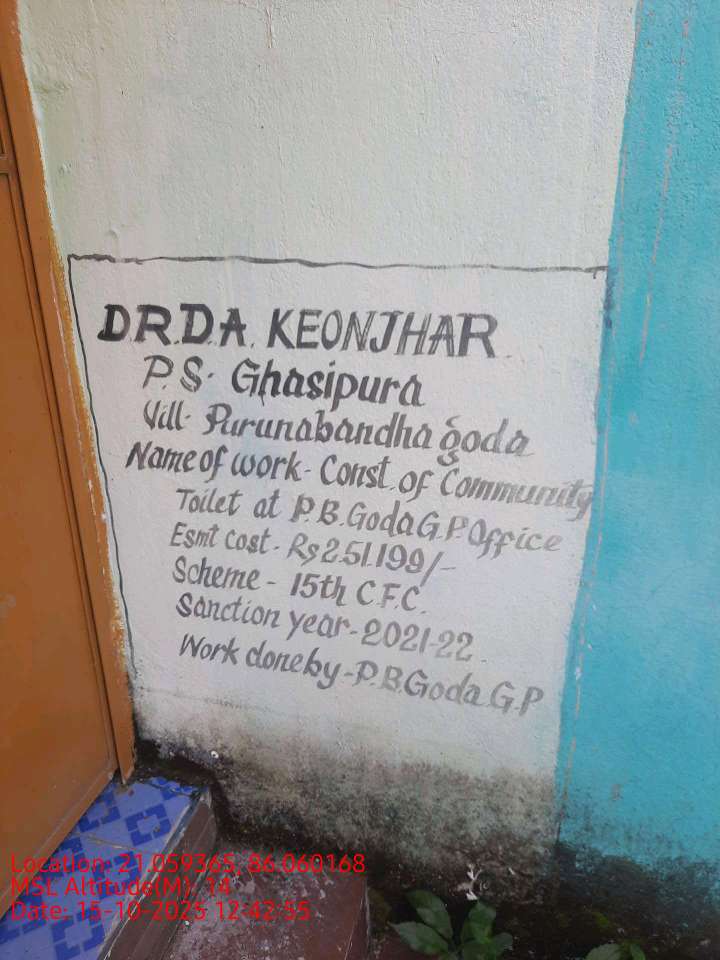 D.R.D.A. KEONJHAR.
P.S- Ghasipura
Vill- Purunabandha goda
Name of work- Const. of Community
Toilet at P.B.Goda G.P. Office
Esmt cost- Rs 2.51.199/-
Scheme - 15th C.F.C.
Sanction year-2021-22.
Work done by-P.B.Goda.G.P
Location: 21.059365, 86.060168
MSL Altitude(M): 14
Date: 15-10-2025 12:42:55